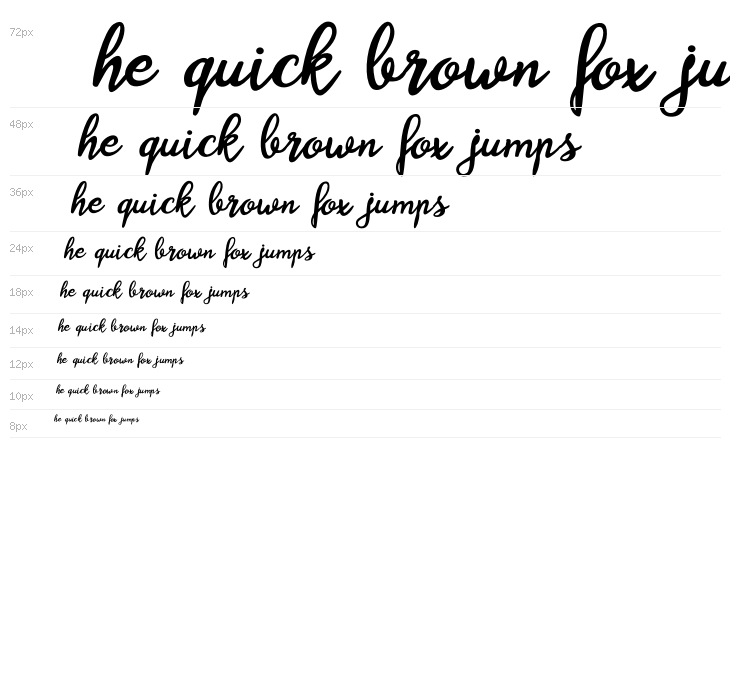 72px he quick brown fox ju
48px he quick brown fox jumps
36px he quick brown fox jumps
24px he quick brown fox jumps
18px he quick brown fox jumps
14px he quick brown fox jumps
12px he quick brown fox jumps
10px he quick brown fox jumps
8px he quick brown fox jumps